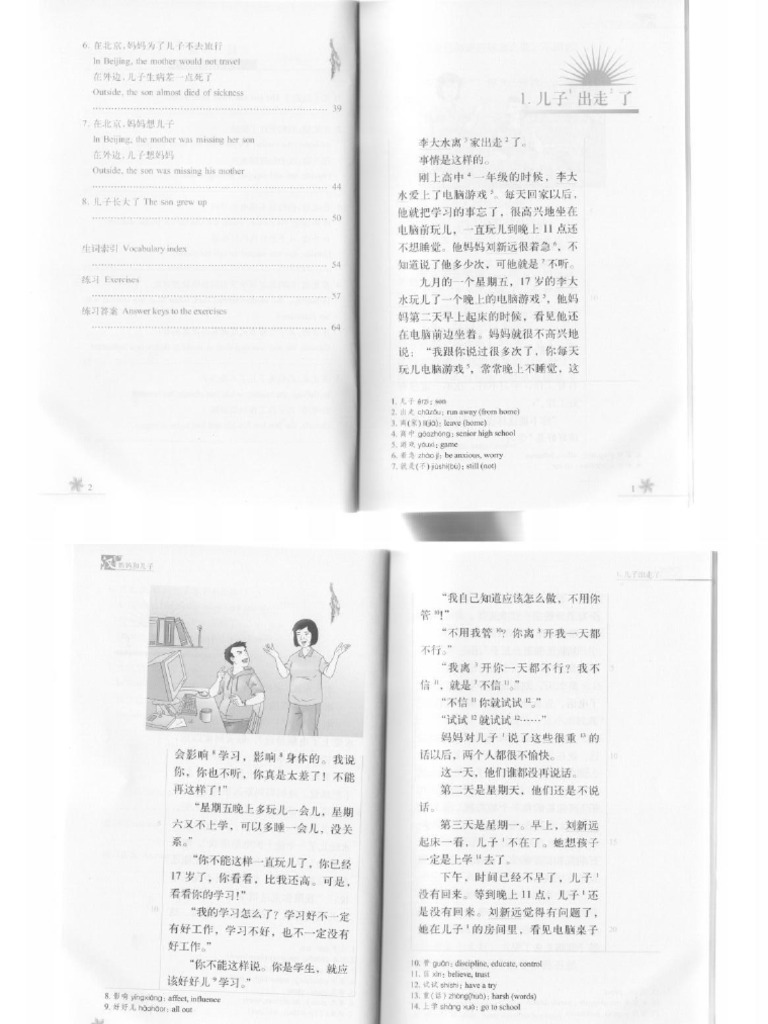 6. 在北京,妈妈为了儿子不去旅行
In Beijing, the mother would not travel
在外边,儿子生病差一点死了
Outside, the son almost died of sickness
39
7. 在北京,妈妈想儿子
In Beijing, the mother was missing her son
在外边,儿子想妈妈
Outside, the son was missing his mother
44
8. 儿子长大了 The son grew up
50
生词索引 Vocabulary index
54
练习 Exercises
57
练习答案 Answer keys to the exercises
64
2
1. 儿子¹出走²了
李大水离³家出走²了。
事情是这样的。
刚上高中⁴一年级的时候,李大
水爱上了电脑游戏⁵。每天回家以后,
他就把学习的事忘了,很高兴地坐在
电脑前玩儿,一直玩儿到晚上 11 点还
不想睡觉。他妈妈刘新远很着急⁶,不
知道说了他多少次,可他就是⁷不听。
九月的一个星期五,17 岁的李大
水玩儿了一个晚上的电脑游戏⁵,他妈
妈第二天早上起床的时候,看见他还
在电脑前边坐着。妈妈就很不高兴地
说:“我跟你说过很多次了,你每天
玩儿电脑游戏⁵,常常晚上不睡觉,这
10
1. 儿子 érzi: son
2. 出走 chūzǒu: run away (from home)
3. 离(家) lí(jiā): leave (home)
4. 高中 gāozhōng: senior high school
5. 游戏 yóuxì: game
6. 着急 zháo jí: be anxious, worry
7. 就是(不) jiùshì(bù): still (not)
1
汉 妈妈和儿子
会影响⁸学习,影响⁸身体的。我说
你,你也不听,你真是太差了!不能
再这样了!”
“星期五晚上多玩儿一会儿,星期
六又不上学,可以多睡一会儿,没关
系。”
“你不能这样一直玩儿了,你已经
17 岁了,你看看,比我还高。可是,
看看你的学习!”
“我的学习怎么了?学习好不一定
有好工作,学习不好,也不一定没有
好工作。”
“你不能这样说。你是学生,就应
该好好儿⁹学习。”
10
8. 影响 yǐngxiǎng: affect, influence
9. 好好儿 hǎohāor: all out
1. 儿子出走了
“我自己知道应该怎么做,不用你
管¹⁰!”
“不用我管¹⁰?你离³开我一天都
不行。”
“我离³开你一天都不行?我不
信¹¹,就是⁷不信¹¹。”
“不信¹¹你就试试¹²。”
“试试¹²就试试¹²……”
妈妈对儿子¹说了这些很重¹³的
话以后,两个人都很不愉快。
这一天,他们谁都没再说话。
第二天是星期天,他们还是不说
话。
第三天是星期一。早上,刘新远
起床一看,儿子¹不在了。她想孩子
一定是上学¹⁴去了。
下午,时间已经不早了,儿子¹
没有回来。等到晚上 11 点,儿子¹还
是没有回来。刘新远觉得有问题了,
她在儿子¹的房间里,看见电脑桌子
5
10
15
20
10. 管 guǎn: discipline, educate, control
11. 信 xìn: believe, trust
12. 试试 shìshi: have a try
13. 重(话) zhòng(huà): harsh (words)
14. 上学 shàng xué: go to school